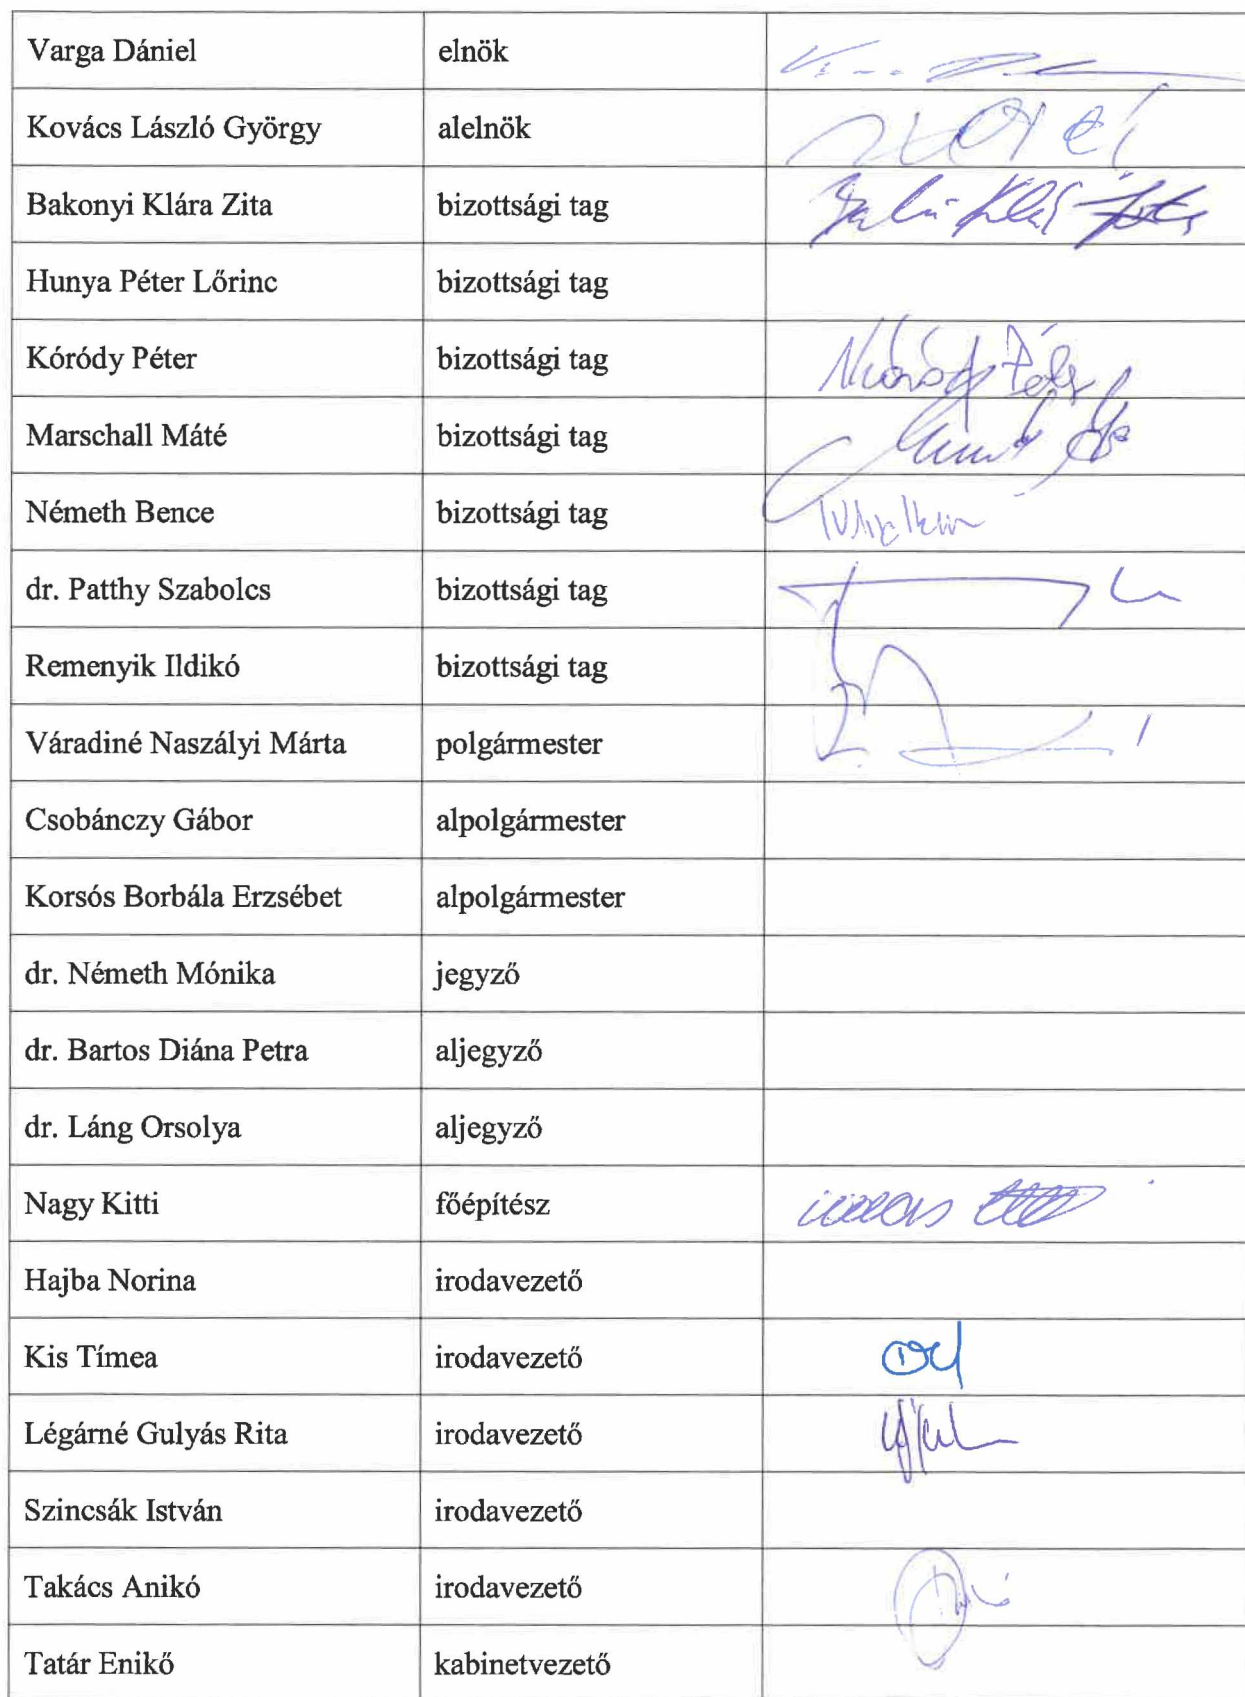 Varga Dániel elnök
Kovács László György alelnök
Bakonyi Klára Zita bizottsági tag
Hunya Péter Lőrinc bizottsági tag
Kóródy Péter bizottsági tag
Marschall Máté bizottsági tag
Németh Bence bizottsági tag
dr. Patthy Szabolcs bizottsági tag
Remenyik Ildikó bizottsági tag
Váradiné Naszályi Márta polgármester
Csobánczy Gábor alpolgármester
Korsós Borbála Erzsébet alpolgármester
dr. Németh Mónika jegyző
dr. Bartos Diána Petra aljegyző
dr. Láng Orsolya aljegyző
Nagy Kitti főépítész
Hajba Norina irodavezető
Kis Tímea irodavezető
Légárné Gulyás Rita irodavezető
Szincsák István irodavezető
Takács Anikó irodavezető
Tatár Enikő kabinetvezető